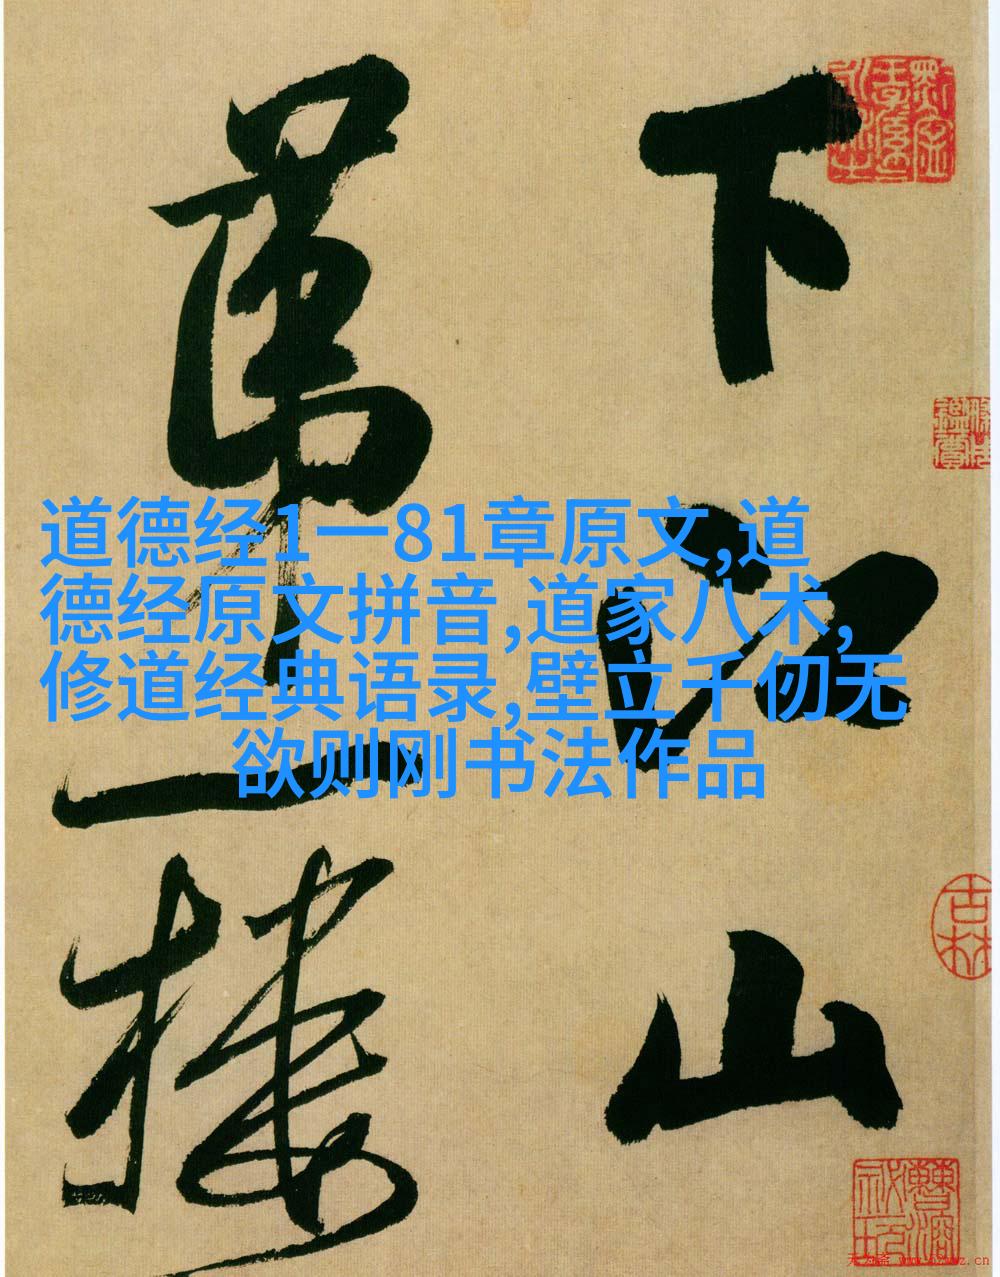 下江山
第一樓
道德经1一81章原文,道
德经原文拼音,道家八术,
修道经典语录,壁立千仞无
欲则刚书法作品